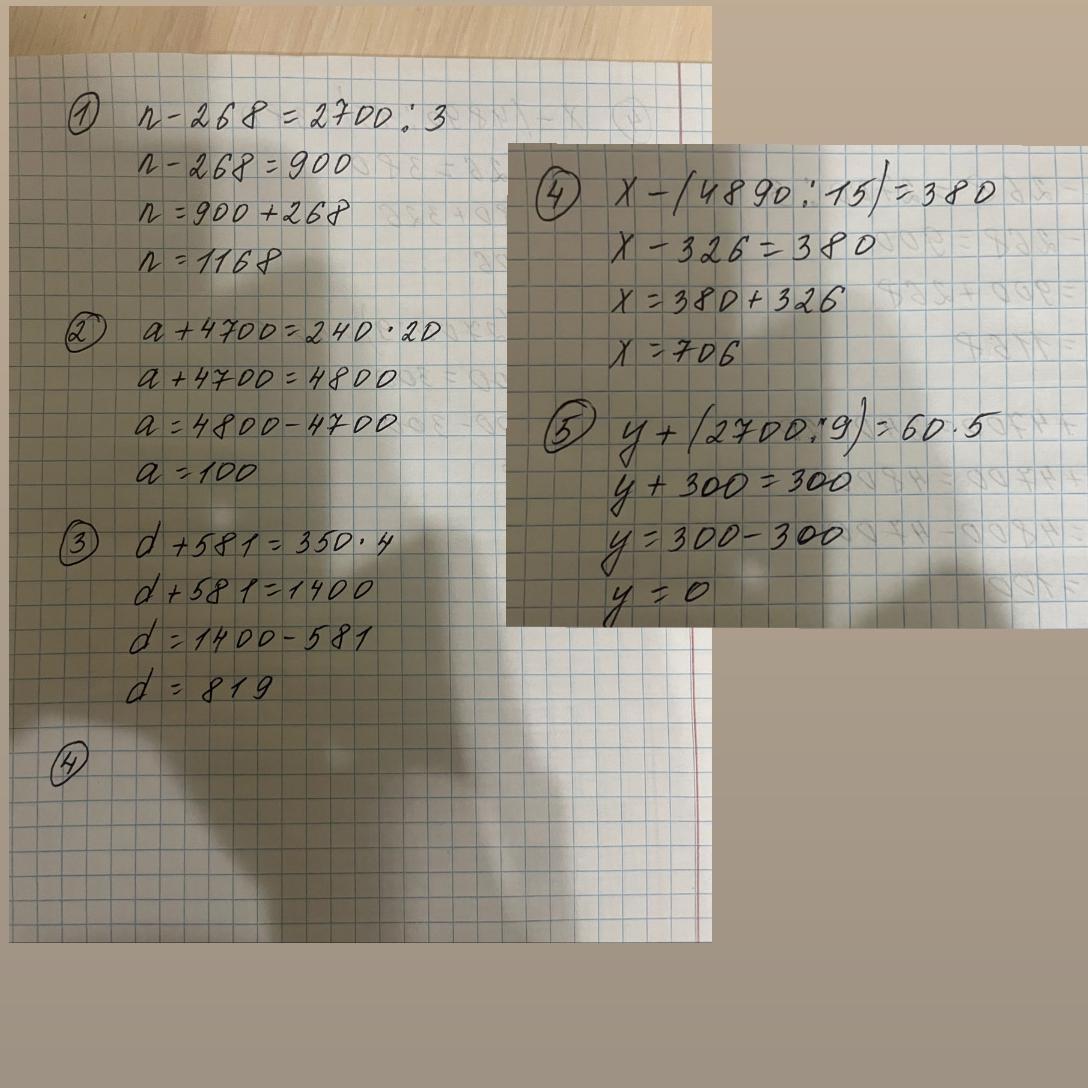 ① n - 268 = 2700 : 3
n - 268 = 900
n = 900 + 268
n = 1168
② a + 4700 = 240 · 20
a + 4700 = 4800
a = 4800 - 4700
a = 100
③ d + 581 = 350 · 4
d + 581 = 1400
d = 1400 - 581
d = 819
④
④ x - (4890 : 15) = 380
x - 326 = 380
x = 380 + 326
x = 706
⑤ y + (2700 : 9) = 60 · 5
y + 300 = 300
y = 300 - 300
y = 0